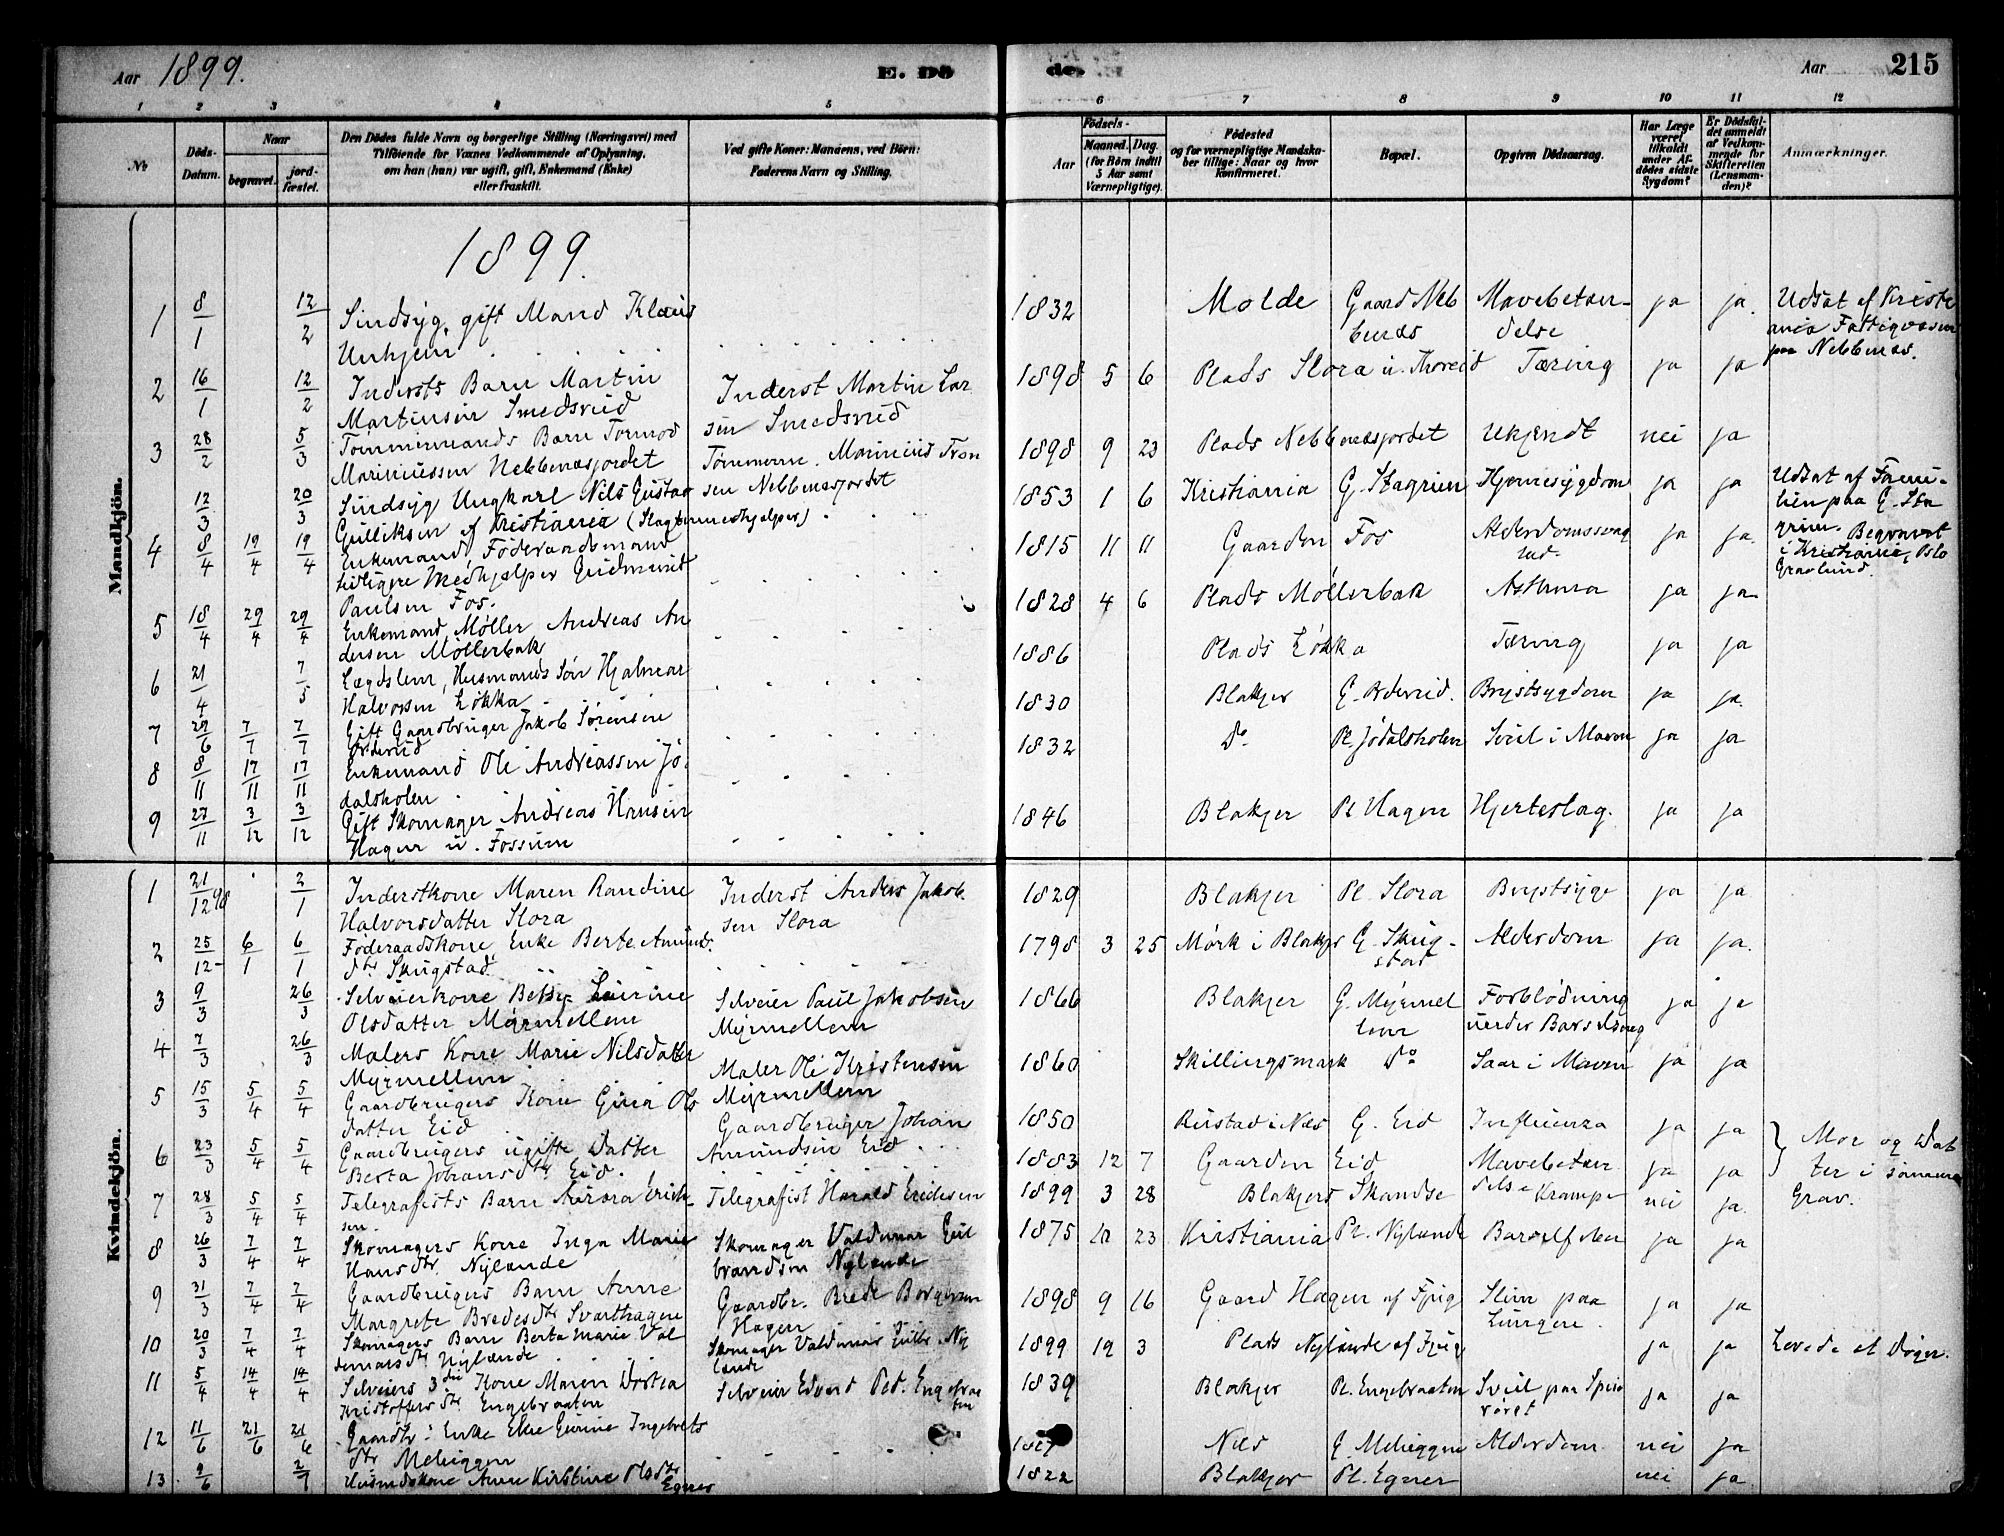 Aar 1899.
E. Dö
de.
Aar
215
1 2 3 4 5 6 7 8 9 10 11 12
№
Döds-Datum.
Naar
begravet.
jordfæstet.
Den Dödes fulde Navn og borgerlige Stilling (Næringsvei) med
Tilföiende for Voxnes Vedkommende af Oplysning,
om han (hun) var ugift, gift, Enkemand (Enke)
eller fraskilt.
Ved gifte Koner: Mandens, ved Börn:
Faderens Navn og Stilling.
Födsels-
Aar
Maaned. Dag.
(for Börn indtil
5 Aar samt
Værnepligtige).
Födested
og for værnepligtige Mandskaber tillige: Naar og hvor
konfirmeret.
Bopæl.
Opgiven Dödsaarsag.
Har Læge
været
tilkaldt
under Afdödes sidste
Sygdom?
Er Dödsfaldet anmeldt
af Vedkommende for
Skifteretten
(Lensmanden)?
Anmærkninger.
Mandkjön.
1899.
1 8/1 12/2 Sindsyg, gift Mand Klaus 1832 Molde Gaard Neb Mavebetæn- ja ja. Udsat af Kristi
benæs delse ania Fattigvæsen
paa Nebbenæs.
2 16/1 12/2 Indersts Barn Martin Inderst Martin Lar 1898 5 6 Plads Slora u. Tæring ja ja
Martinsen Smedsrud sen Smedsrud
3 28/2 5/3 Tømmermands Barn Tormod Tømmerm. Marinius 1898 9 23 Plads Nebbenæsjordet Ukjendt nei ja
Mariniussen Nebbenæsjordet sen Nebbenæsjordet
12/3 20/3 Sindsyg Ungkarl Nils Gustav 1853 1 6 Kristiania G. Hjernesygdom ja ja Udsat af Fami-
Gulliksen af Kristiania (Slagtermedhjelper) lien paa G.
4 8/4 19/4 19/4 Enkemand, Føderaadsmand 1815 11 11 Gaarden Fos Alderdomssvag ja ja. Begravet
tidligere Medhjælper Gudmund hed i Kristiania, Oslo
Paulsen Fos. Gravlund.
5 18/4 29/4 29/4 Enkemand Møller Andreas An 1828 4 6 Plads Møllerbak Asthma ja ja
dersen Møllerbak
6 21/4 7/5 Lægdslem, Husmands Søn Hjalmar 1886 Plads Løkka Tæring ja ja
Halvorsen Løkka
7 29/6 7/7 7/7 Gift Gaardbruger Jakob Sørensen 1830 Blakjer G. Orderud. Brystsygdom ja ja.
Orderud
8 8/11 17/11 17/11 Enkemand Ole Andreassen Jø- 1832 Do Pl. Jødalsholen Svul i Maven ja ja
dalsholen
9 27/11 3/12 3/12 Gift Skomager Andreas Hansen 1846 Blakjer Pl Hagen Hjerteslag. ja ja
Hagen u. Fossum
Kvindekjön.
1 21/12 98 2/1 Inderstkone Maren Randine Inderst Anders Jakob- 1829 Blakjer Pl. Slora Brystsyge ja ja
Halvorsdatter Slora sen Slora
2 25/12 6/1 6/1 Føderaadskone Enke Berte Amunds. 1798 3 25 Mørk i Blakjer G. Skug- Alderdom ja ja.
dtr Skugstad stad
3 9/3 26/3 Selveierkone Betsy Laurine Selveier Paul Jakobsen 1866 Blakjer G. Myrmel Forblødning ja ja
Olsdatter Myrmellem Myrmellem lem under Barselseng
4 7/3 26/3 Malers Kone Marie Nilsdatter Maler Ole Kristensen 1860 Skillingsmark Do Saar i Maven ja ja
Myrmellem Myrmellem
5 15/3 5/4 5/4 Gaardbrugers Kone Gina Ols Gaardbruger Johan 1850 Rustad i Næs G. Eid Influenza ja ja
datter Eid Amundsen Eid
6 23/3 5/4 5/4 Gaardbrugers ugifte Datter 1883 12 7 Gaarden Eid Mavebetæn ja ja Mor og Dat
Berta Johansdtr Eid. delse ter i samme
Grav.
7 28/3 5/4 5/4 Telegrafists Barn Aurora Erik- Telegrafist Harald Eriksen 1899 3 28 Blakjers Skandse Krampe nei ja.
sen.
8 26/3 7/4 7/4 Skomagers Kone Inga Marie Skomager Valdemar Gul 1875 10 23 Kristiania Pl. Nylænde Barselfeber ja ja
Hansdtr Nylænde brandsen Nylænde
9 31/3 7/4 7/4 Gaardbrugers Barn Anne Gaardbr. Brede Borgersen 1898 9 16 Gaard Hagen af Fjug Slim paa ja ja
Margrete Bredesdtr Svarthagen Hagen Lungene.
10 20/3 7/4 7/4 Skomagers Barn Berta Marie Val Skomager Valdemar Gulbr. Ny 1899 3 Plads Nylænde af Fjug ja ja Levede et Døgn.
demarsdtr Nylænde lænde
11 5/4 14/4 14/4 Selveiers 3die Kone Maren Dortea Selveier Edvard Ped. Engebraa 1839 Blakjer Pl. Engebraaten Svul paa Spise ja ja
Kristoffersdtr Engebraaten ten røret
12 11/6 21/6 21/6 Gaardbr. Enke Else Gurine Ingebrets Næs G Meheggen Alderdom nei ja
dtr Meheggen
13 9/6 2/9 Husmdskone Anne Kirstine Olsdtr 1822 Blakjer Pl. Egner nei ja
Egner